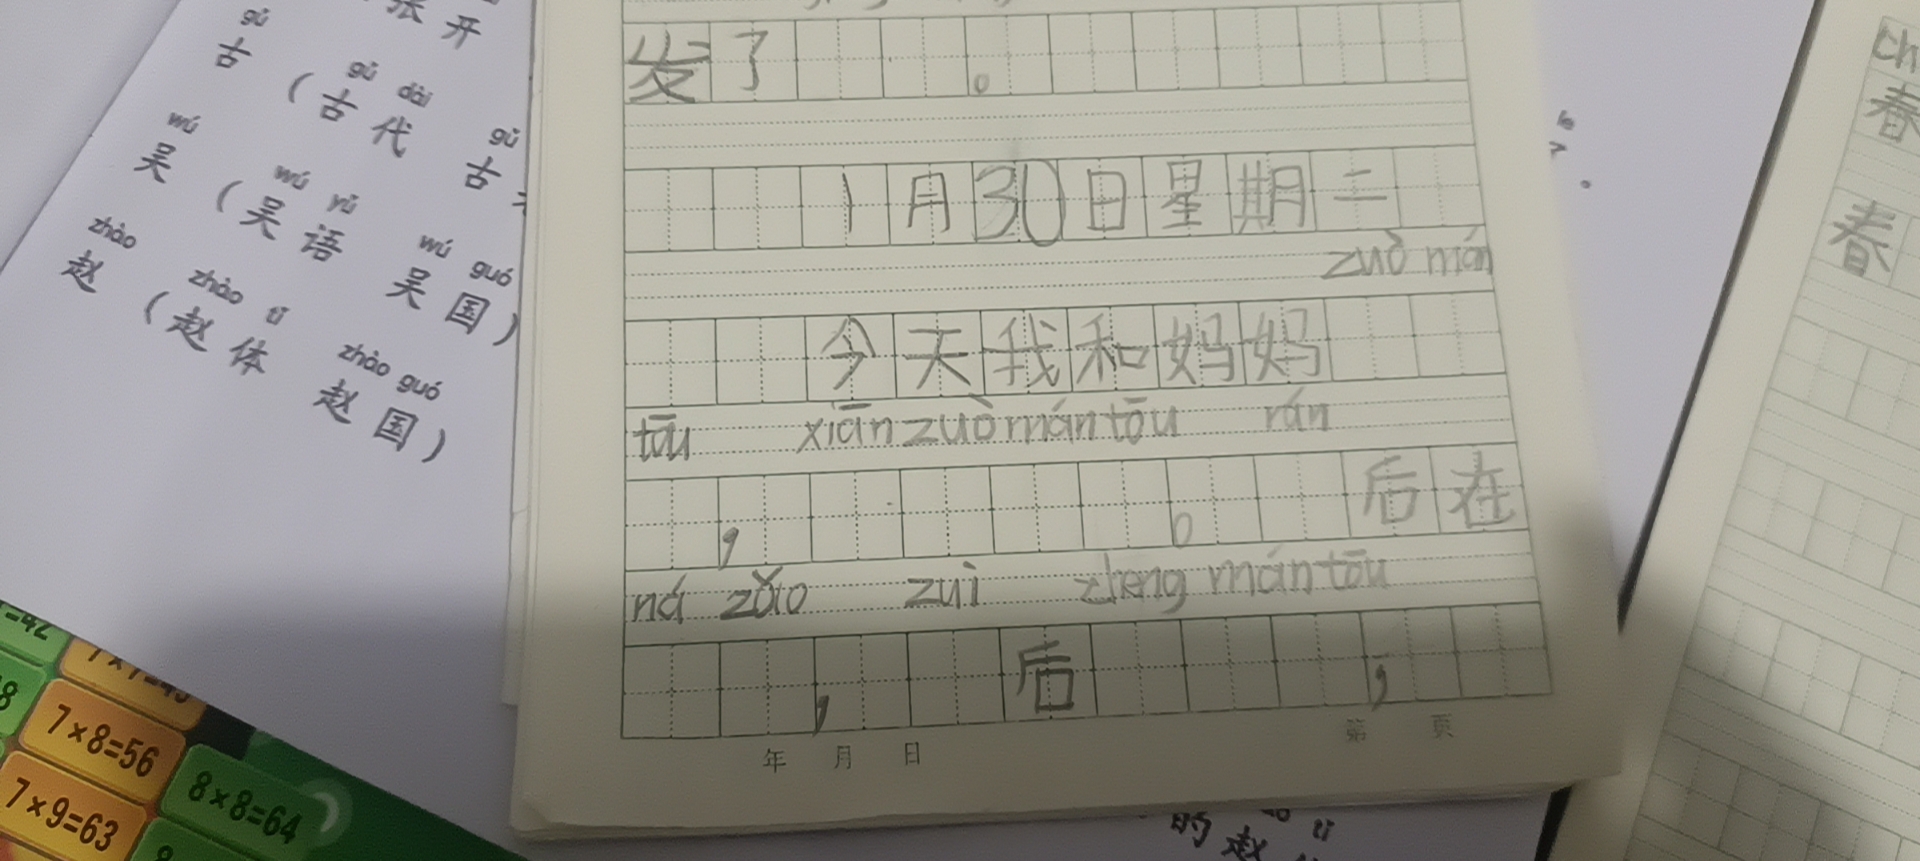 张开
gǔ
古
gǔ dài
(古代
gǔ
古
wú
吴
wú yǔ
(吴语
wú guó
吴国)
zhào
赵
zhào tǐ
(赵体
zhào guó
赵国)
发了 。
1月30日星期二
zuò mán
今天我和妈妈
tōu xiān zuò mán tōu rán
, 。 后在
ná zǎo zuì zhēng mán tōu
, 后 ,
年 月 日 第 页
春
春
=42
7×8=56
7×9=63
8×8=64
tǐ
的赵